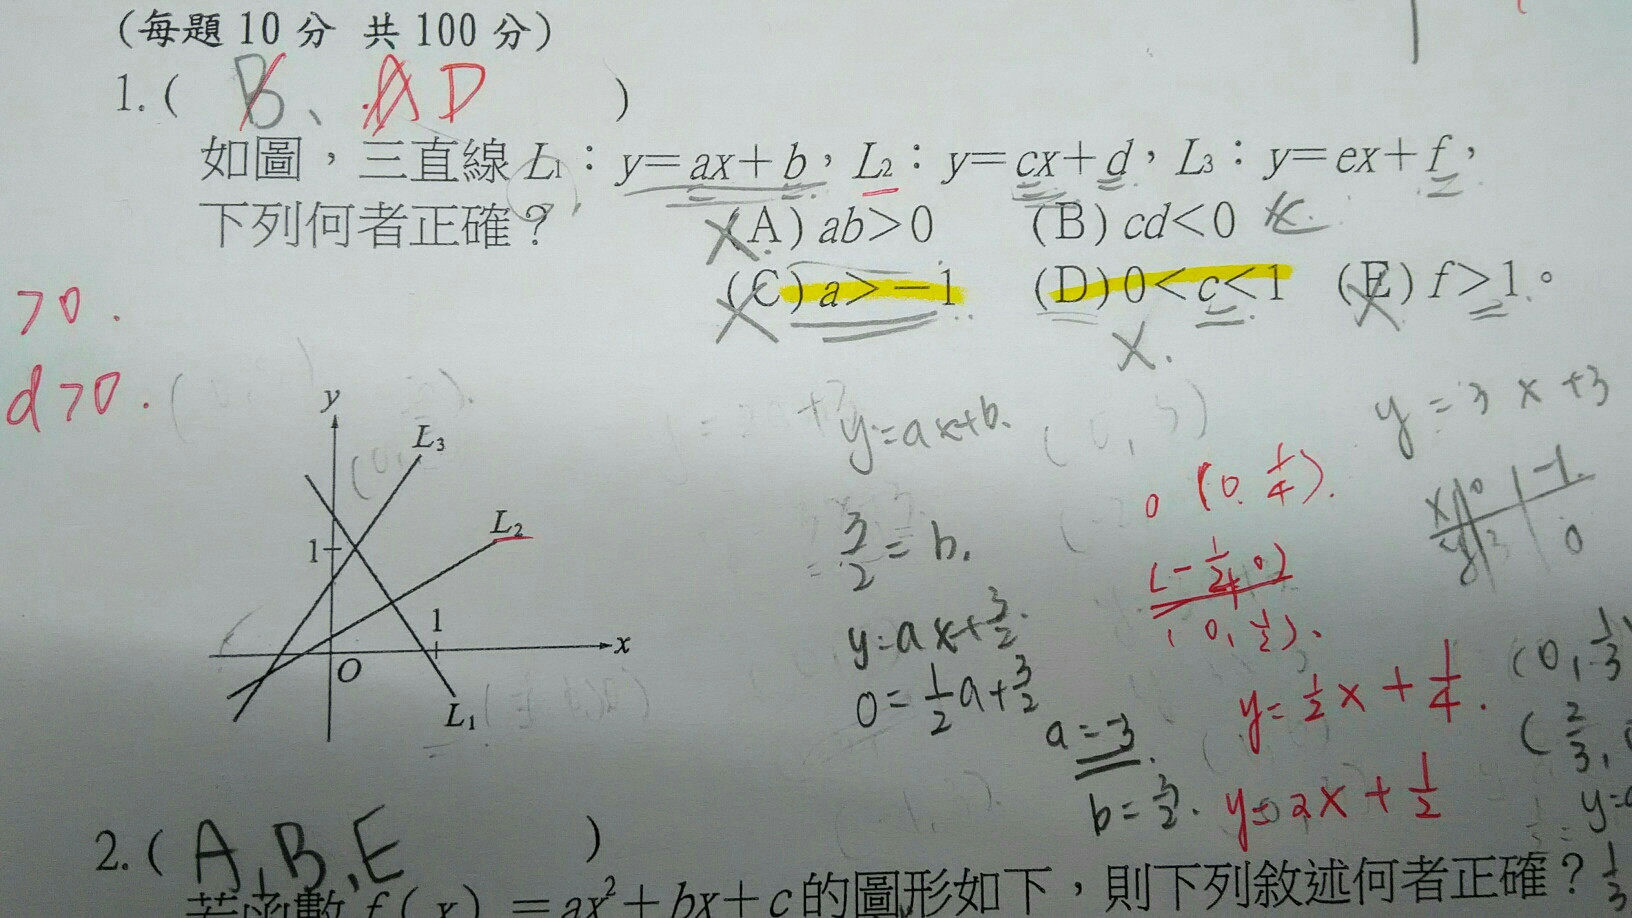 (每題 10 分 共 100 分)
1. ( B、A D )
如圖，三直線 L₁：y=ax+b，L₂：y=cx+d，L₃：y=ex+f，
下列何者正確？ (A) ab>0 (B) cd<0
(C) a>−1 (D) 0<c<1 (E) f>1。
>0.
d>0.
y
L₃
L₂
1
1
x
O
L₁
y=ax+b.
3/2=b.
y=ax+3/2.
0=1/2a+3/2
a=-3
b=3/2.
0 (0. 1/4).
(0, 1/2).
y=1/2x+1/4.
y=2x+1/2
y=3x+3
x 0 -1
y 3 0
(0, 1/3
(2/3,
y=
1/3
2. ( A,B,E )
若函數 f(x)=ax²+bx+c的圖形如下，則下列敘述何者正確？